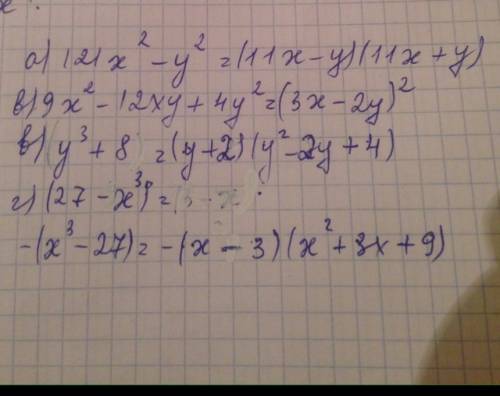 а) 121x² - y² = (11x - y)(11x + y)
в) 9x² - 12xy + 4y² = (3x - 2y)²
в) (y³ + 8) = (y + 2)(y² - 2y + 4)
г) (27 - x³) = (3 - x
-(x³ - 27) = -(x - 3)(x² + 3x + 9)